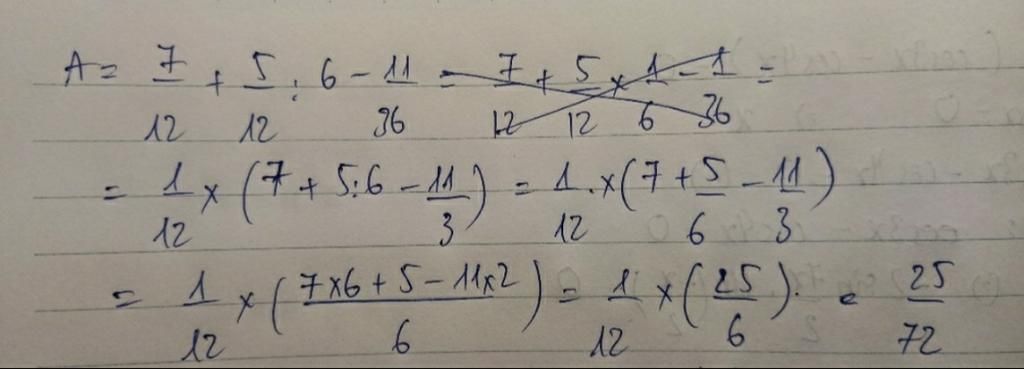 A = 7/12 + 5/12 : 6 - 11/36 = 7/12 + 5/12 × 1/6 - 1/36 =
= 1/12 × (7 + 5:6 - 11/3) = 1/12 .× (7 + 5/6 - 11/3)
= 1/12 × (7×6 + 5 - 11×2/6) = 1/12 × (25/6). = 25/72